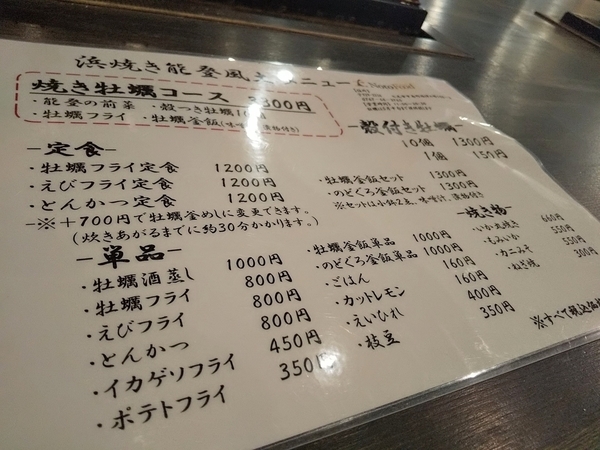 浜焼き能登風土
メニュー
NotoFood
焼き牡蠣コース
・能登の前菜 ・殻つき牡蠣10個
・牡蠣フライ ・牡蠣釜飯(味噌汁、漬物付き)
-殻付き牡蠣-
10個 1300円
1個 150円
-定食-
・牡蠣フライ定食 1200円
・えびフライ定食 1200円
・とんかつ定食 1200円
-※+700円で牡蠣釜めしに変更できます。
(炊きあがるまでに約30分かかります。)
・牡蠣釜飯セット 1300円
・のどぐろ釜飯セット 1300円
※セットは小鉢2点、味噌汁、漬物付き
-単品-
・牡蠣酒蒸し 1000円
・牡蠣フライ 800円
・えびフライ 800円
・とんかつ 800円
・イカゲソフライ 450円
・ポテトフライ 350円
・牡蠣釜飯単品 1000円
・のどぐろ釜飯単品 1000円
・ごはん 160円
・カットレモン 160円
・えいひれ 400円
・枝豆 350円
-焼き物-
・いか丸焼き 660円
・もみいか 550円
・カニみそ 550円
・ねぎ焼 300円
※すべて税込価格